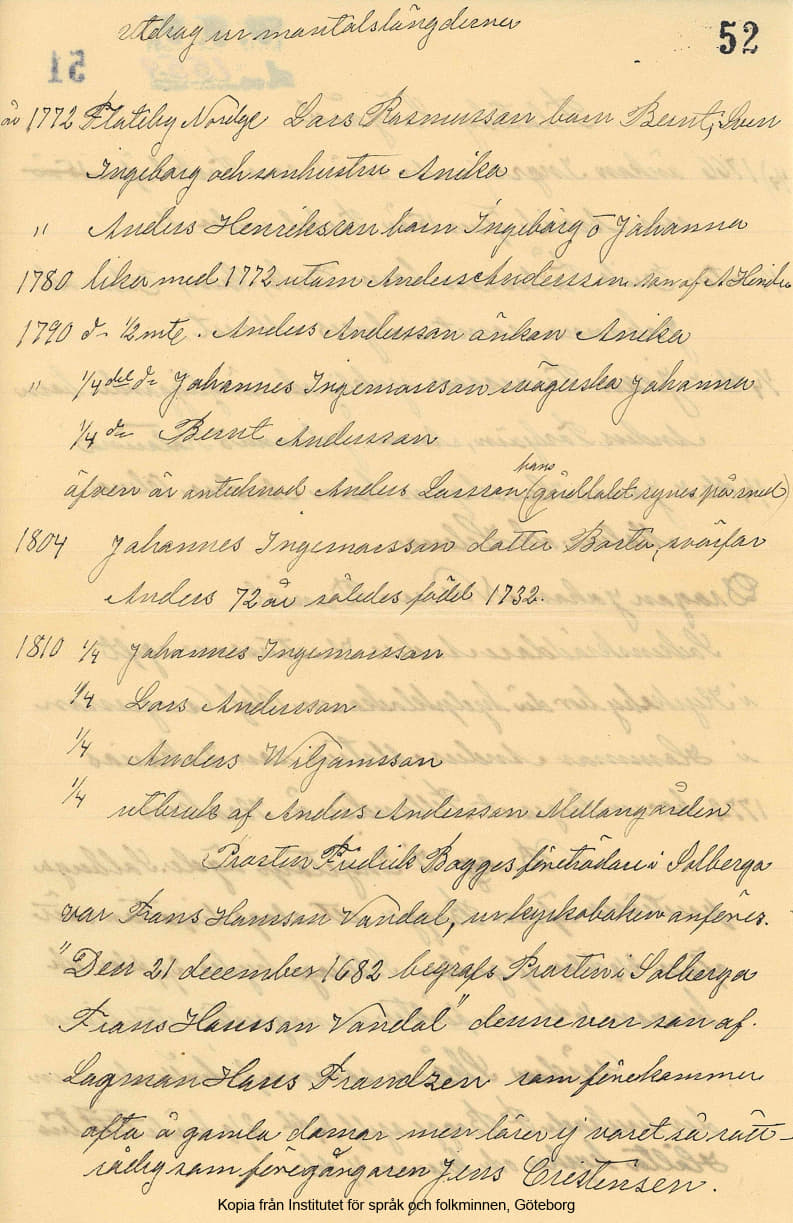 utdrag ur mantalslängderna
52
51
år 1772 Flateby Nordge Lars Rasmusson barn Bernt, Sven
Ingeborg och sonhustru Anika
" Anders Henriksson barn Ingebårg o Johanna
1780 lika med 1772 utom Anders Andersson son af A Hendr
1790 d= 1/2 mtl. Anders Andersson änkan Anika
" 1/4 del d= Johannes Ingemarsson svägerska Johanna
1/4 d= Bernt Andersson
äfven är antecknad Anders Larsson (hans gårdtalet synes på med)
1804 Johannes Ingemarsson dotter Barta, svärfar
Anders 72 år således född 1732.
1810 1/4 Johannes Ingemarsson
1/4 Lars Andersson
1/4 Anders Wiljamsson
1/4 utbruk af Anders Andersson Mellangården
Prosten Fredrik Bagges företrädare i Solberga
var Frans Hansson Vandal, ur kyrkoboken anföres.
"Den 21 december 1682 begrafs Prosten i Solberga
Frans Hansson Vandal" denne var son af.
Lagman Hans Frandzen som förekommer
ofta å gamla domar men lärer ej varet så rätt-
rådig som föregångaren Jens Cristensen.
Kopia från Institutet för språk och folkminnen, Göteborg